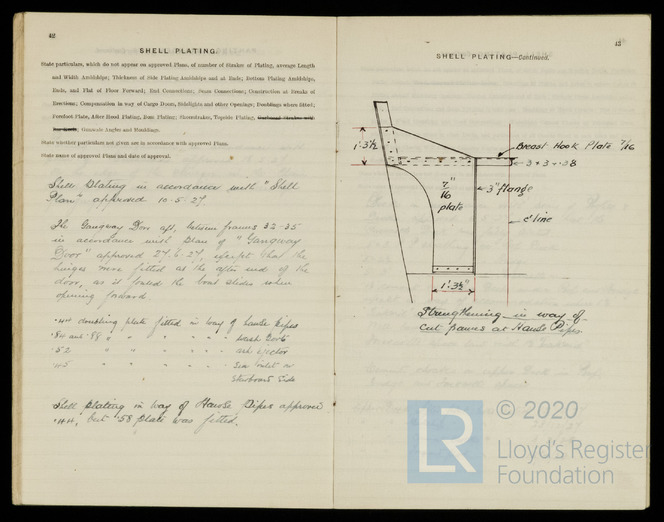 42
SHELL PLATING.
State particulars, which do not appear on approved Plans, of number of Strakes of Plating, average Length
and Width Amidships; Thickness of Side Plating Amidships and at Ends; Bottom Plating Amidships,
Ends, and Flat of Floor Forward; End Connections; Seam Connections; Construction at Breaks of
Erections; Compensation in way of Cargo Doors, Sidelights and other Openings; Doublings where fitted;
Forefoot Plate, After Hood Plating, Boss Plating; Sheerstrakes, Topside Plating,
Gunwale Angles and Doublings.
State whether particulars not given are in accordance with approved Plans.
State name of approved Plans and date of approval.
Shell Plating in accordance with "Shell
Plan" approved 10.5.27
The Gangway Door aft, between frames 32-35
in accordance with plan of "Gangway
Door" approved 27.6.27, except that the
hinges were fitted at the after end of the
door, as it fouled the boat slides when
opening forward.
.44 doubling plate fitted in way of hawse pipes
.84 and .88 " " " " " " wash ports
.52 " " " " " " ash ejector
.45 " " " " " " sea inlet on
Starboard Side
Shell plating in way of Hawse Pipes approved
.44, but .58 plate was fitted.
43
SHELL PLATING—Continued.
1'.3½
Breast Hook Plate 7/16
3 × 3 × .38
7/16"
plate
3" flange
C line
1'.3½"
Strengthening in way of
cut frames at Hawse Pipes
© 2020
LR
Lloyd's Register
Foundation